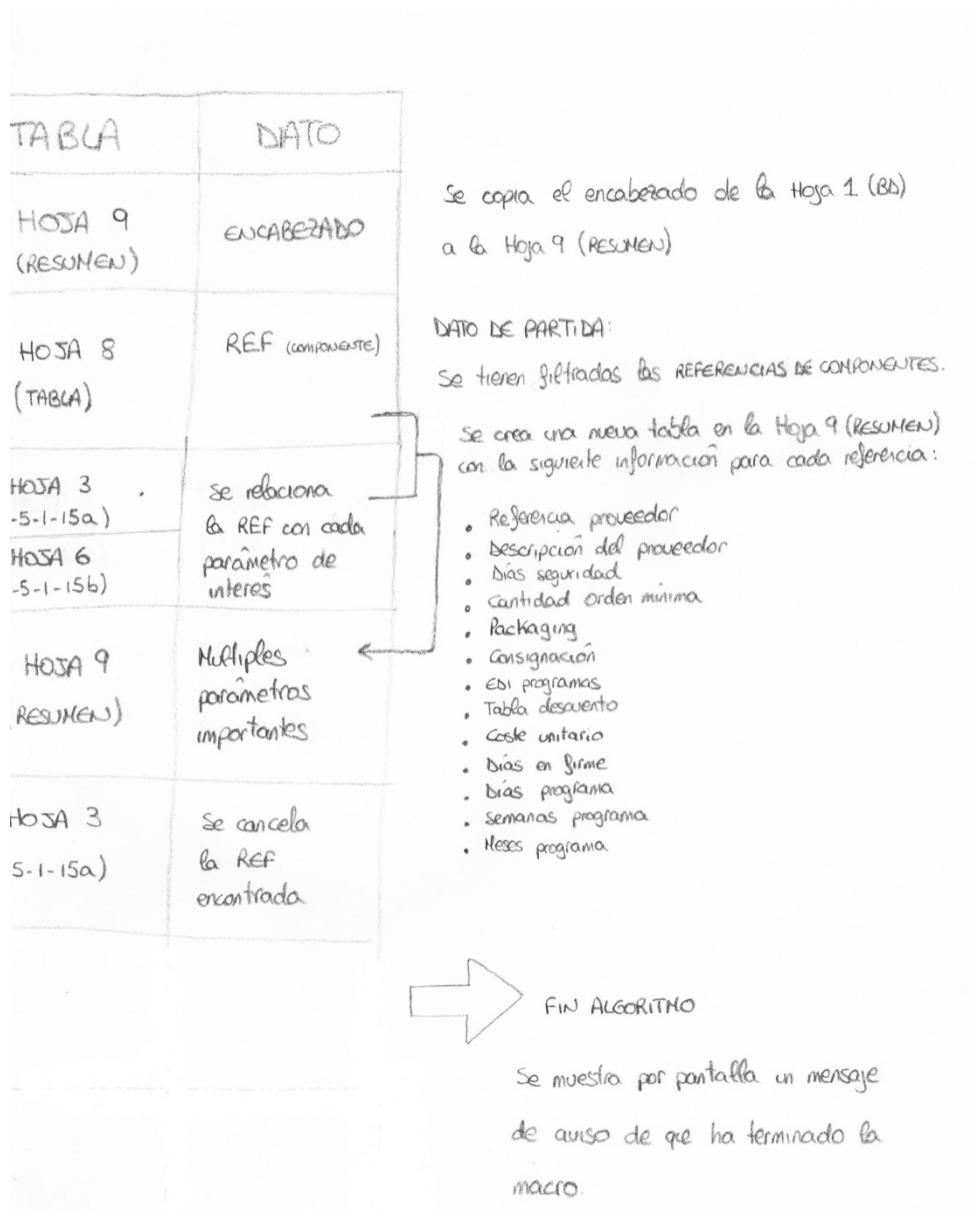 TABLA
DATO
HOJA 9
(RESUMEN)
ENCABEZADO
HOJA 8
(TABLA)
REF (COMPONENTE)
HOJA 3
-5-1-15a)
HOJA 6
-5-1-15b)
Se relaciona
la REF con cada
parámetro de
interés
HOJA 9
RESUMEN)
Multiples
parámetros
importantes
HOJA 3
5-1-15a)
Se cancela
la REF
encontrada
Se copia el encabezado de la Hoja 1 (BD)
a la Hoja 9 (RESUMEN)
DATO DE PARTIDA:
Se tienen filtradas las REFERENCIAS DE COMPONENTES.
Se crea una nueva tabla en la Hoja 9 (RESUMEN)
con la siguiente información para cada referencia:
• Referencia proveedor
• Descripción del proveedor
• Días seguridad
• Cantidad orden mínima
• Packaging
• Consignación
• EDI programas
• Tabla descuento
• Coste unitario
• Días en firme
• Días programa
• Semanas programa
• Meses programa
FIN ALGORITMO
Se muestra por pantalla un mensaje
de aviso de que ha terminado la
macro.